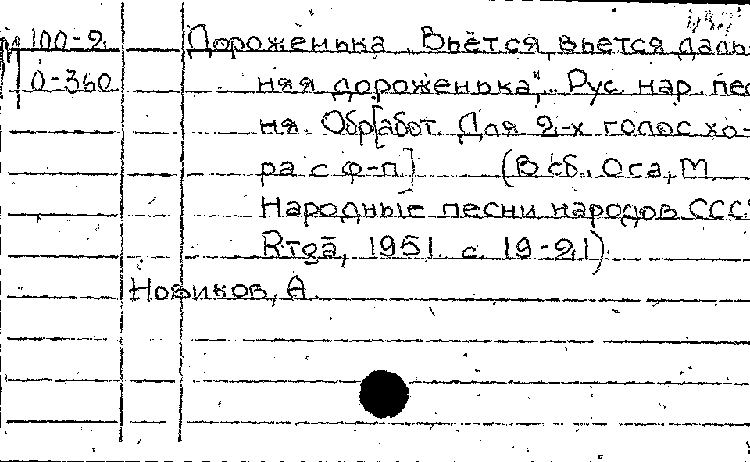 М 100-2 Дороженька. Вьётся, вьется даль-
0-360 няя дороженька", Рус. нар. пес-
ня. Обр[абот. Для 2-х голос хо-
ра с ф-п] (В сб., Оса, М
Народные песни народов СССР
Rīgā, 1951. с. 19-21)
Новиков, А.